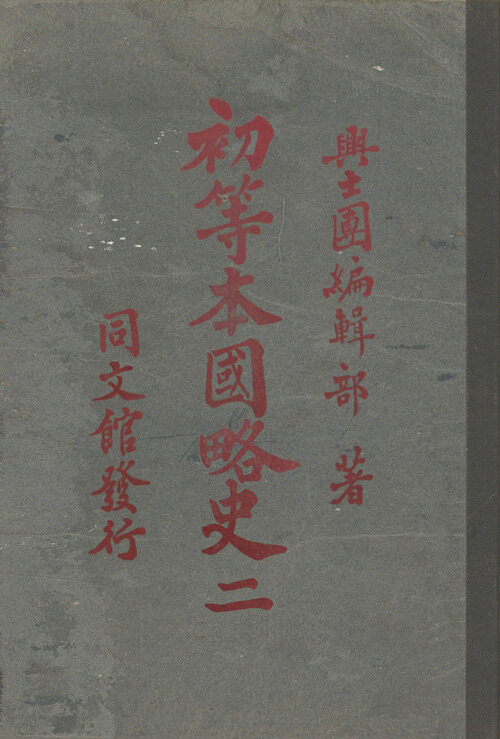 興士團編輯部 著
初等本國略史二
同文館發行